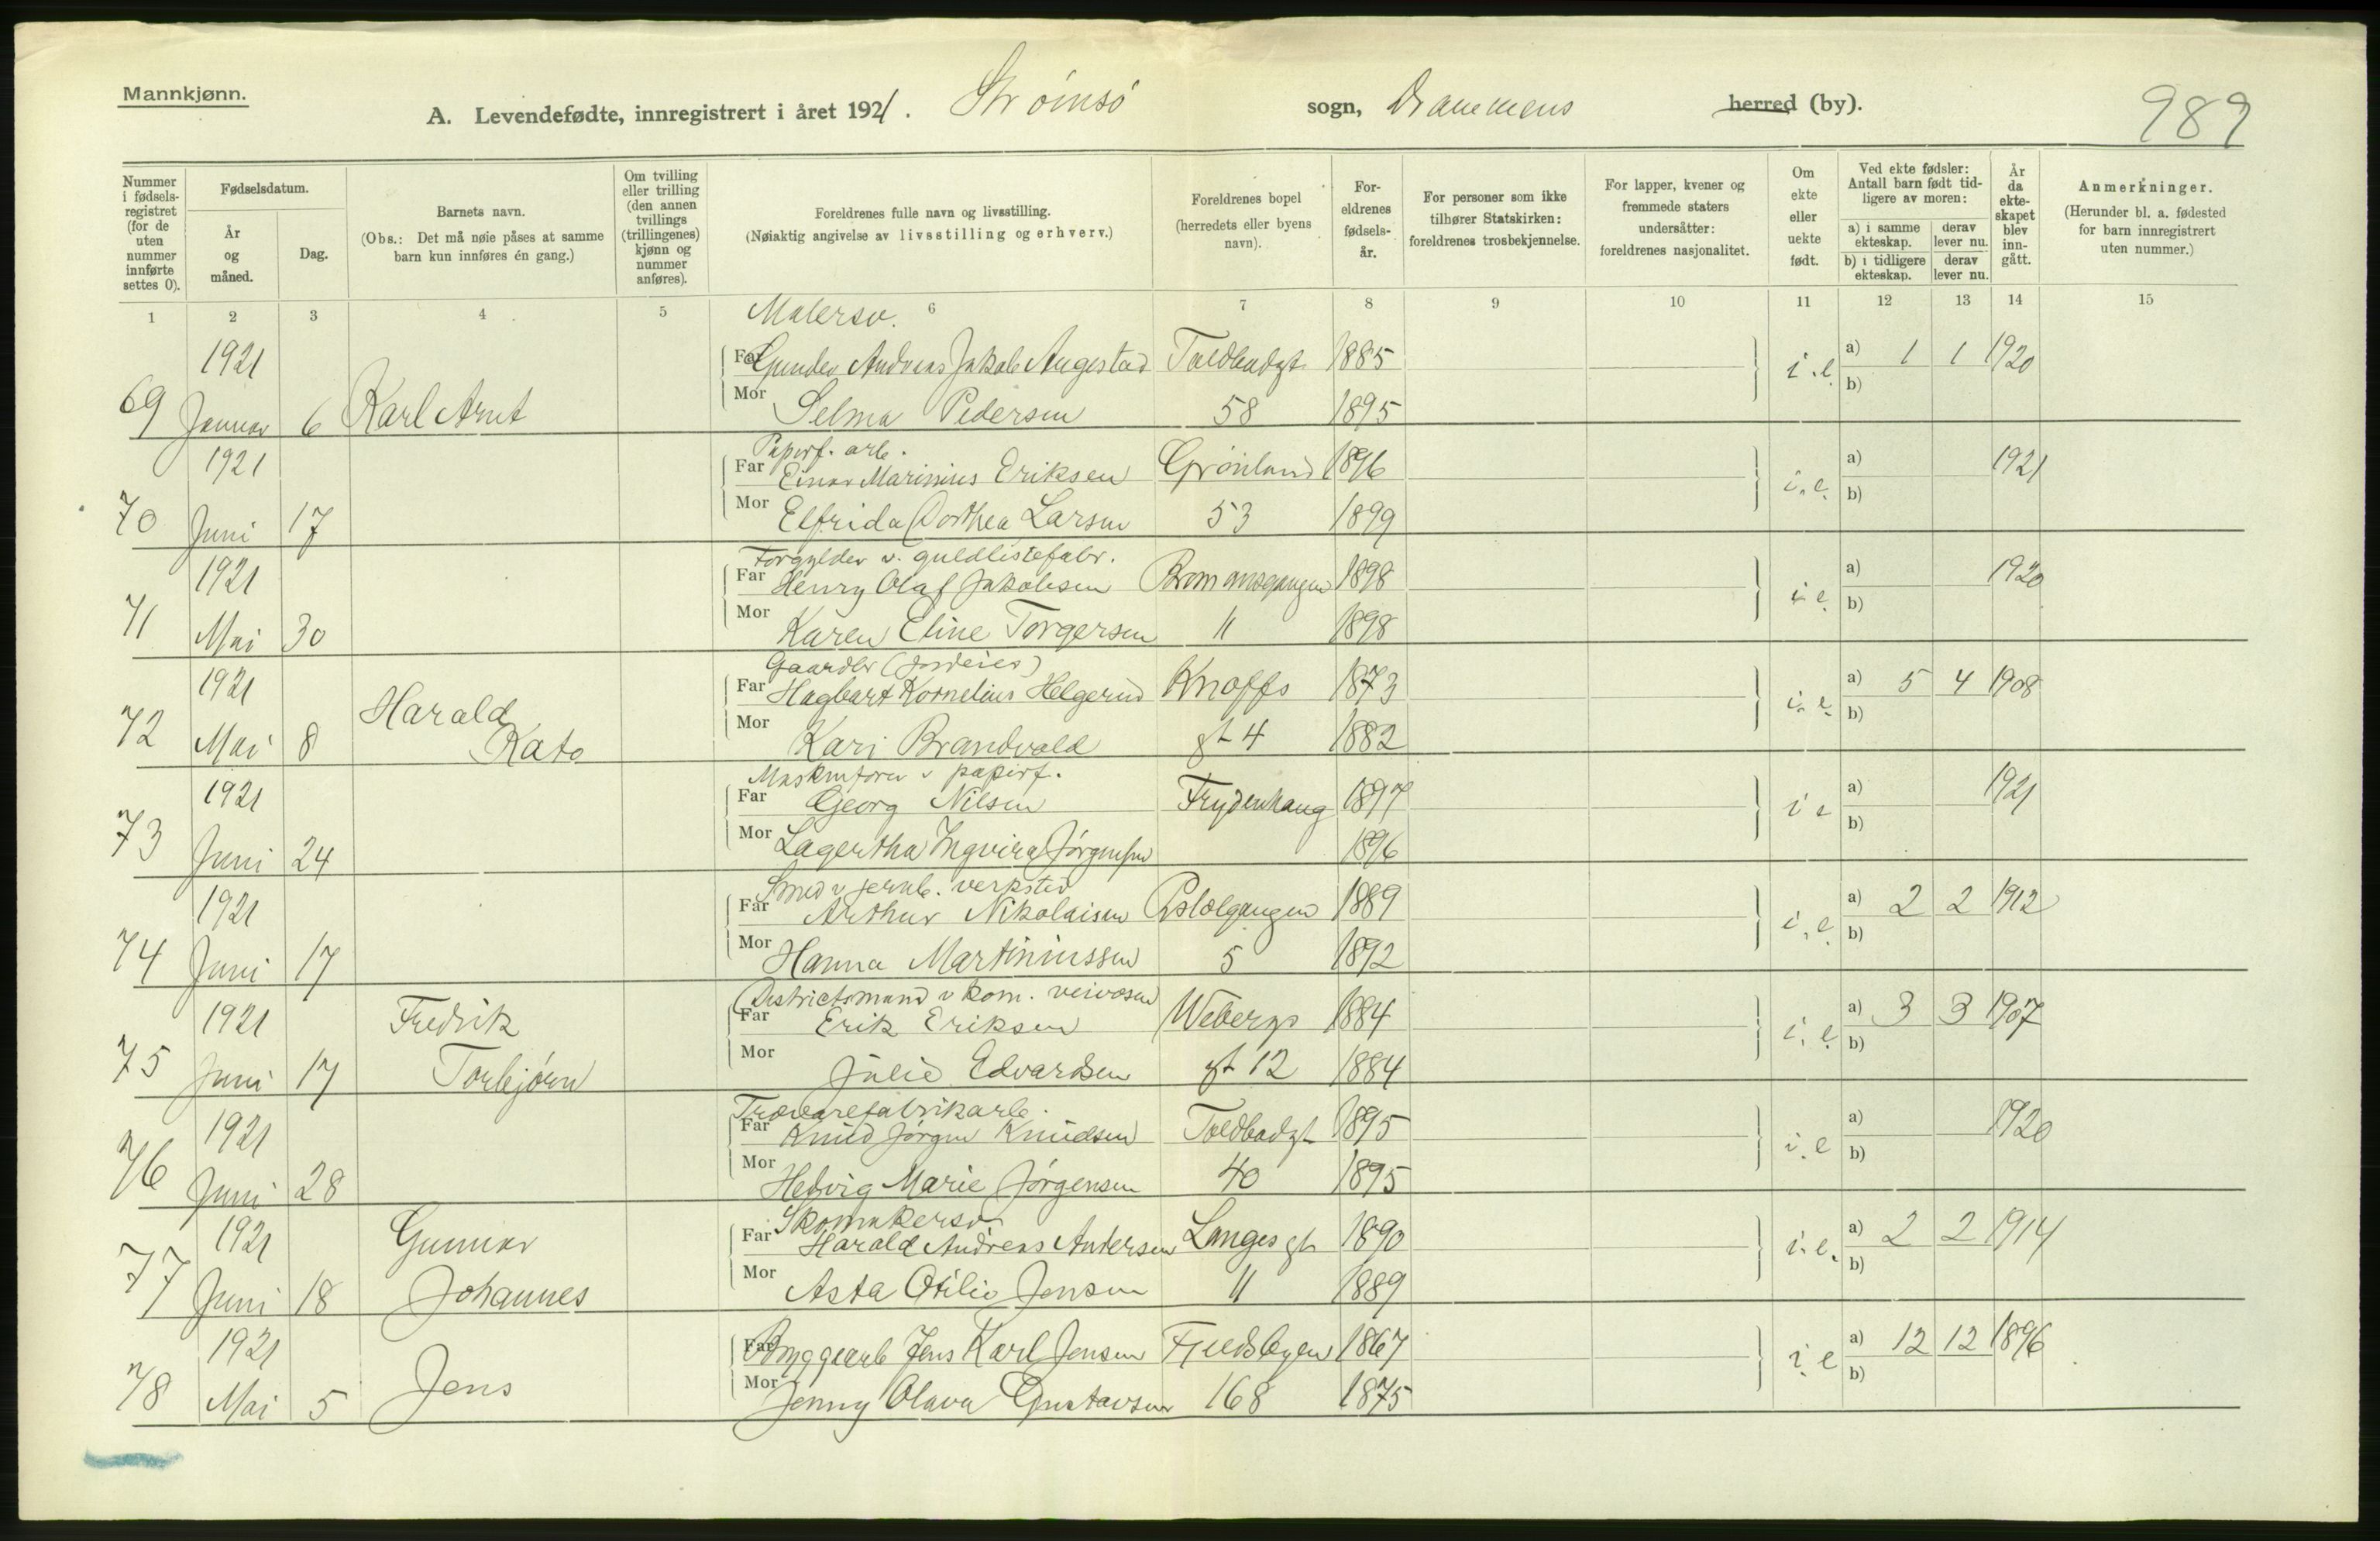 Mannkjønn.
A. Levendefødte, innregistrert i året 1921. Strømsø sogn, Drammens herred (by). 989
Nummer i fødsels-registret (for de uten nummer innførte settes 0).
Fødselsdatum.
År og måned.
Dag.
Barnets navn.
(Obs.: Det må nøie påses at samme barn kun innføres én gang.)
Om tvilling eller trilling (den annen tvillings (trillingenes) kjønn og nummer anføres).
Foreldrenes fulle navn og livsstilling.
(Nøiaktig angivelse av livsstilling og erhverv.)
Foreldrenes bopel
(herredets eller byens navn).
For-eldrenes fødsels-år.
For personer som ikke tilhører Statskirken: foreldrenes trosbekjennelse.
For lapper, kvener og fremmede staters undersåtter: foreldrenes nasjonalitet.
Om ekte eller uekte født.
Ved ekte fødsler: Antall barn født tid-ligere av moren:
a) i samme ekteskap. derav lever nu.
b) i tidligere ekteskap. derav lever nu.
År da ekte-skapet blev inn-gått.
Anmerkninger.
(Herunder bl. a. fødested for barn innregistrert uten nummer.)
1 2 3 4 5 6 7 8 9 10 11 12 13 14 15
Malersv.
1921 Far Gunder Andreas Jakob Augestad Toldbodgt 1885 i.e. a) 1 1 1920
69 Januar 6 Karl Arnt Mor Selma Pedersen 58 1895 b)
Papirf. arb.
1921 Far Einar Marinius Eriksen Grönland 1896 i.e. a) 1921
70 Juni 17 Mor Elfrida Dorthea Larsen 53 1899 b)
Forgylder v. guldlistefabr.
1921 Far Henry Olaf Jakobsen 1898 i e. a) 1920
71 Mai 30 Mor Karen Eline Torgersen 11 1898 b)
Gaardbr (jordeier)
1921 Harald Far Hagbart Kornelius Helgerud Knoffs 1873 i. e. a) 5 4 1908
72 Mai 8 Kato Mor Kari Brandvold gt 4 1882 b)
Maskinfører v papirf.
1921 Far Georg Nilsen Frydenhaug 1897 i e a) 1921
73 Juni 24 Mor Lagertha Ingvira Jörgensen 1896 b)
Smed v jernb. verksted
1921 Far Arthur Nikolaisen 1889 i. e. a) 2 2 1912
74 Juni 17 Mor Hanna Martiniussen 5 1892 b)
Districtsmand v kom. veivæsen
1921 Fredrik Far Erik Eriksen Webergs 1884 i. e. a) 3 3 1907
75 Juni 17 Torbjörn Mor Julie Edvardsen gt 12 1884 b)
Trævarefabrikarb.
1921 Far Knud Jörgen Knudsen Toldbodgt 1895 i. e a) 1920
76 Juni 28 Mor Hedvig Marie Jörgensen 40 1895 b)
Skomakersv.
1921 Gunnar Far Harald Andreas Andersen Langes gt 1890 i. e. a) 2 2 1914
77 Juni 18 Johannes Mor Asta Otilie Jensen 11 1889 b)
1921 Far Bryggearb Jens Karl Jensen 1867 i e a) 12 12 1896
78 Mai 5 Jens Mor Jenny Olava Gustavsen 168 1875 b)